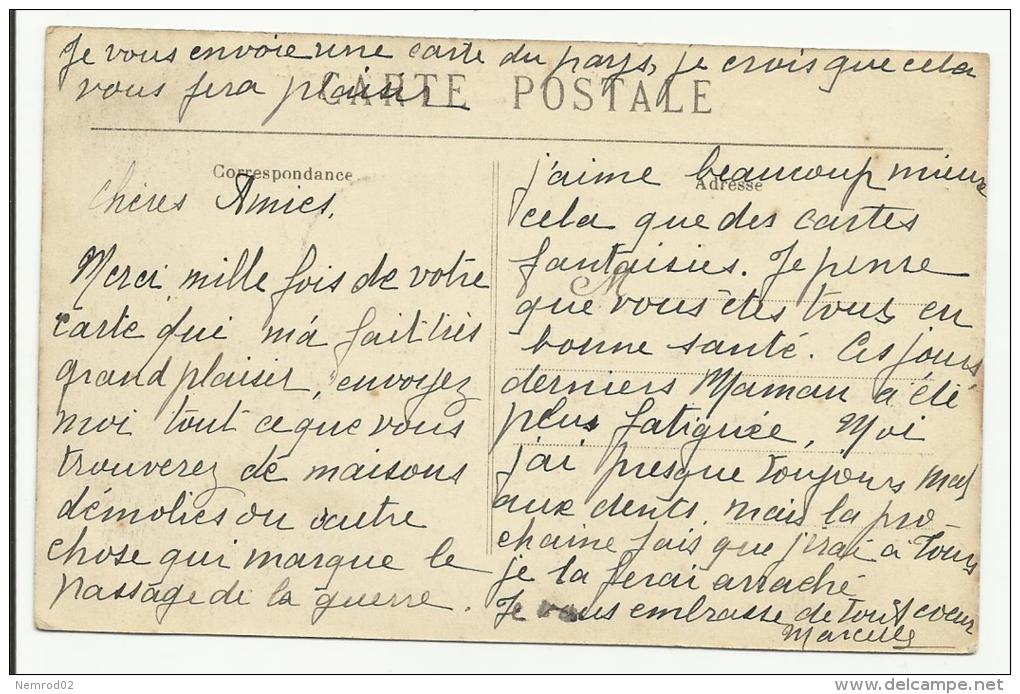 Je vous envoie une carte du pays, je crois que cela
vous fera plaisir
CARTE POSTALE
Correspondance
Adresse
chères Amies,
Merci mille fois de votre
carte qui m'a fait très
grand plaisir, envoyez
moi tout ce que vous
trouverez de maisons
démolies ou autre
chose qui marque le
passage de la guerre.
j'aime beaucoup mieux
cela que des cartes
fantaisies. Je pense
M
que vous êtes tous en
bonne santé. Ces jours
derniers Maman a été
plus fatiguée, Moi
j'ai presque toujours mal
aux dents, mais la pro-
chaine fois que j'irai à Tours
je la ferai arraché
Je vous embrasse de tout coeur
Marcelle
Nemrod02
delcampe.net